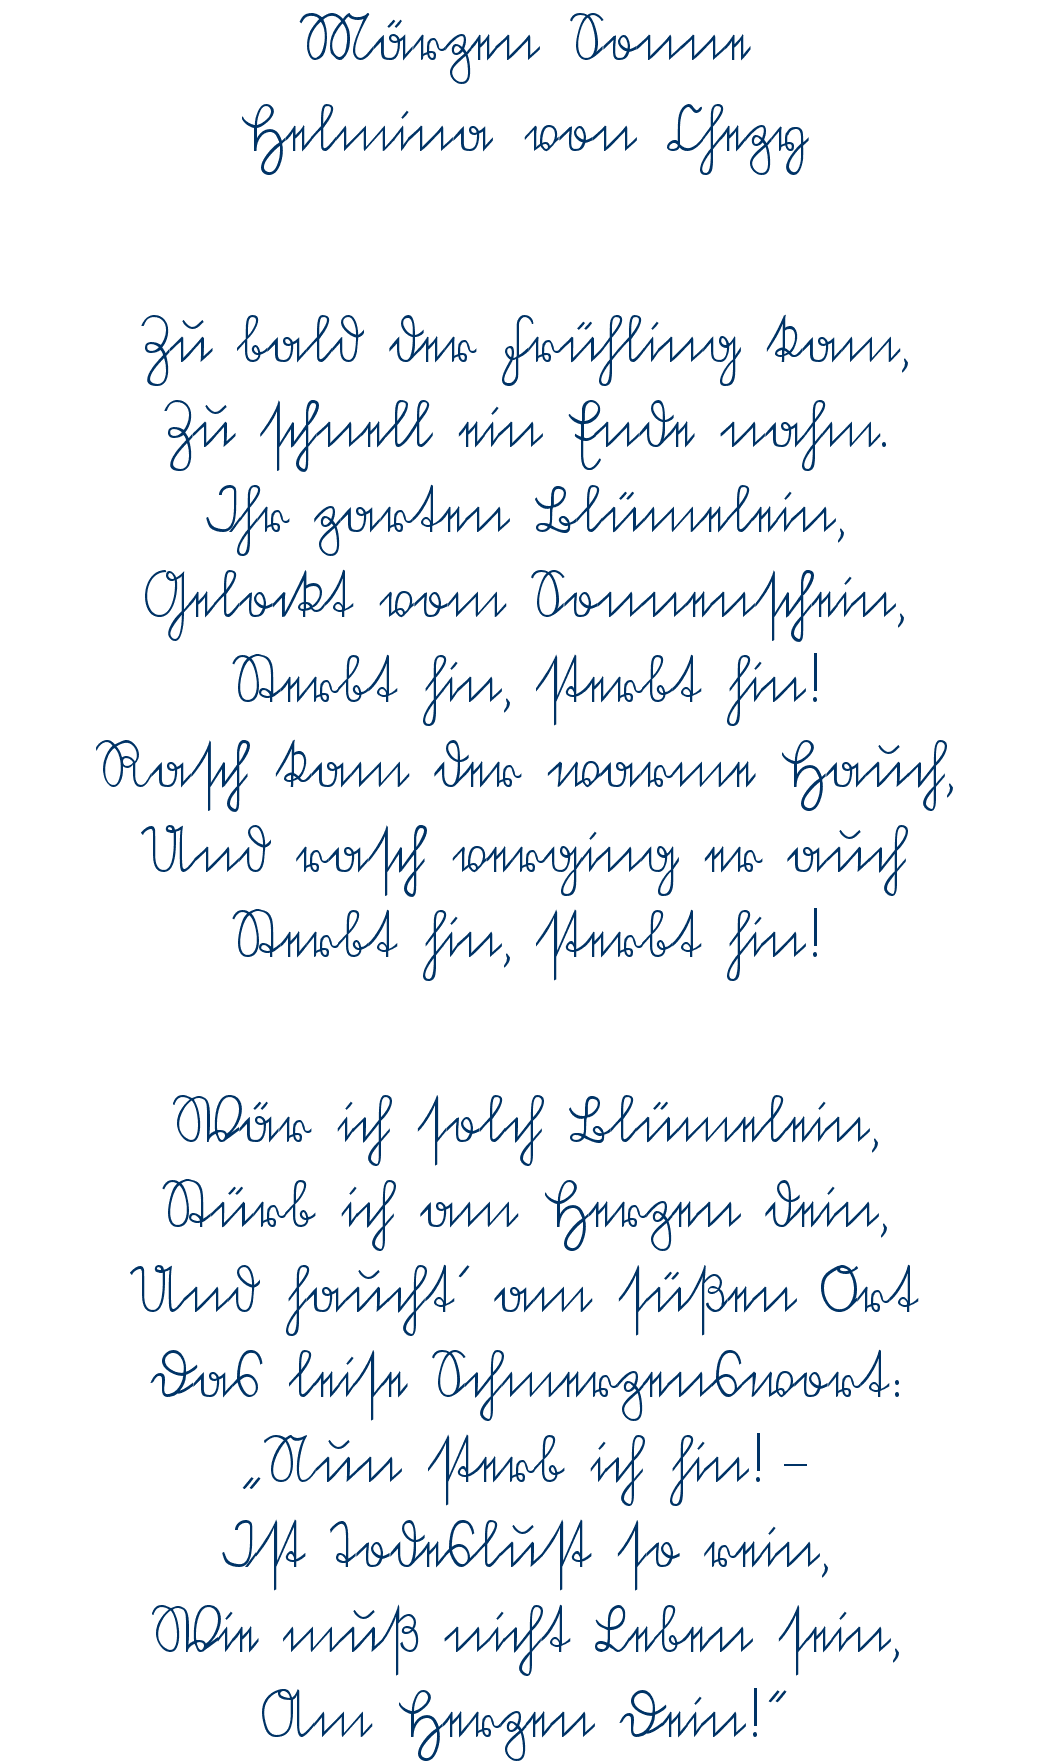 Märzen Sonne
Helmina von Chezy
Zu bald der Frühling kam,
Zu schnell ein Ende nahm.
Ihr zarten Blümelein,
Gelockt vom Sonnenschein,
Sterbt hin, sterbt hin!
Rasch kam der warme Hauch,
Und rasch verging er auch
Sterbt hin, sterbt hin!
Wär ich solch Blümelein,
Stürb ich am Herzen dein,
Und haucht´ am süßen Ort
Das leise Schmerzenswort:
„Nun sterb ich hin! –
Ist Todeslust so rein,
Wie muß nicht Leben sein,
Am Herzen Dein!“